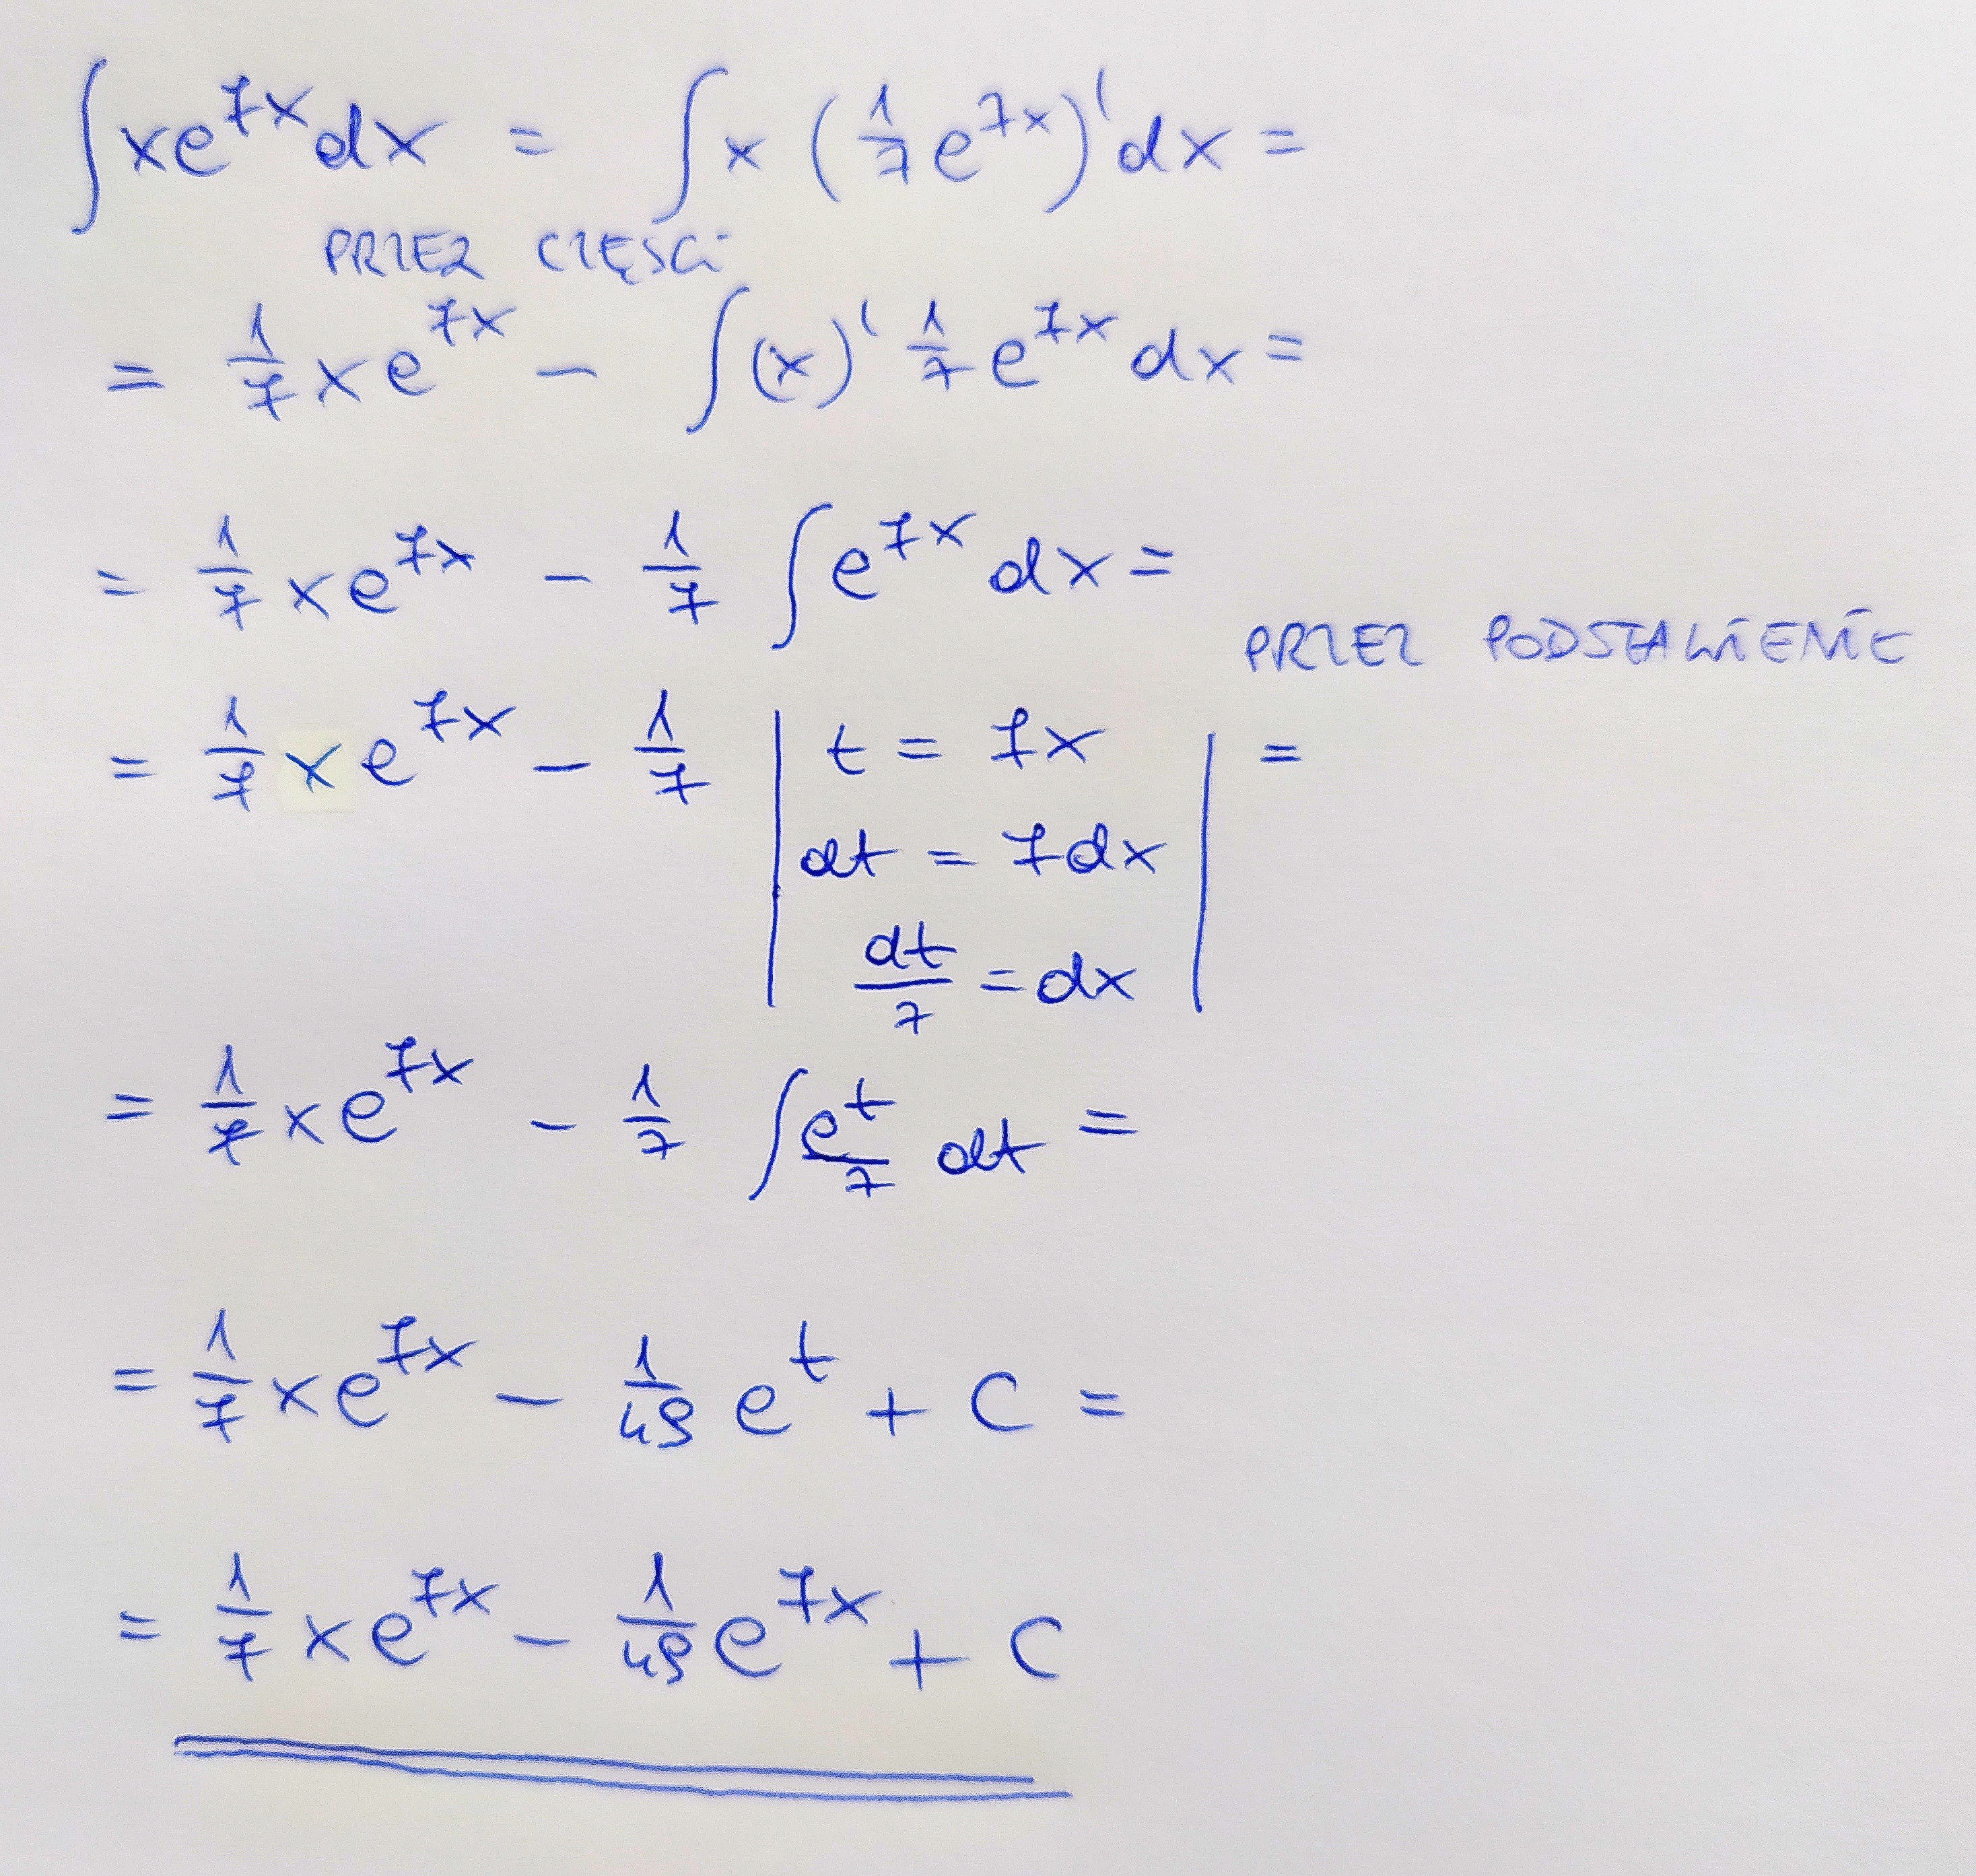 ∫xe^{7x}dx = ∫x(\frac{1}{7}e^{7x})'dx =
PRZEZ CZĘŚCI
= \frac{1}{7}xe^{7x} - ∫(x)'\frac{1}{7}e^{7x}dx =
= \frac{1}{7}xe^{7x} - \frac{1}{7}∫e^{7x}dx =
PRZEZ PODSTAWIENIE
= \frac{1}{7}xe^{7x} - \frac{1}{7} | t = 7x | =
dt = 7dx
\frac{dt}{7} = dx
= \frac{1}{7}xe^{7x} - \frac{1}{7}∫\frac{e^t}{7}dt =
= \frac{1}{7}xe^{7x} - \frac{1}{49}e^t + C =
= \frac{1}{7}xe^{7x} - \frac{1}{49}e^{7x} + C